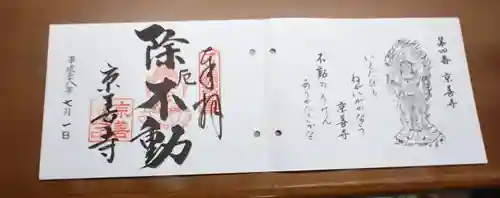 奉拝
除厄不動
京善寺
平成二八年七月一日
京善
第四番 京善寺
いくたびも
ねがいかなえる
京善寺
不動のりやく
ありがたきかな